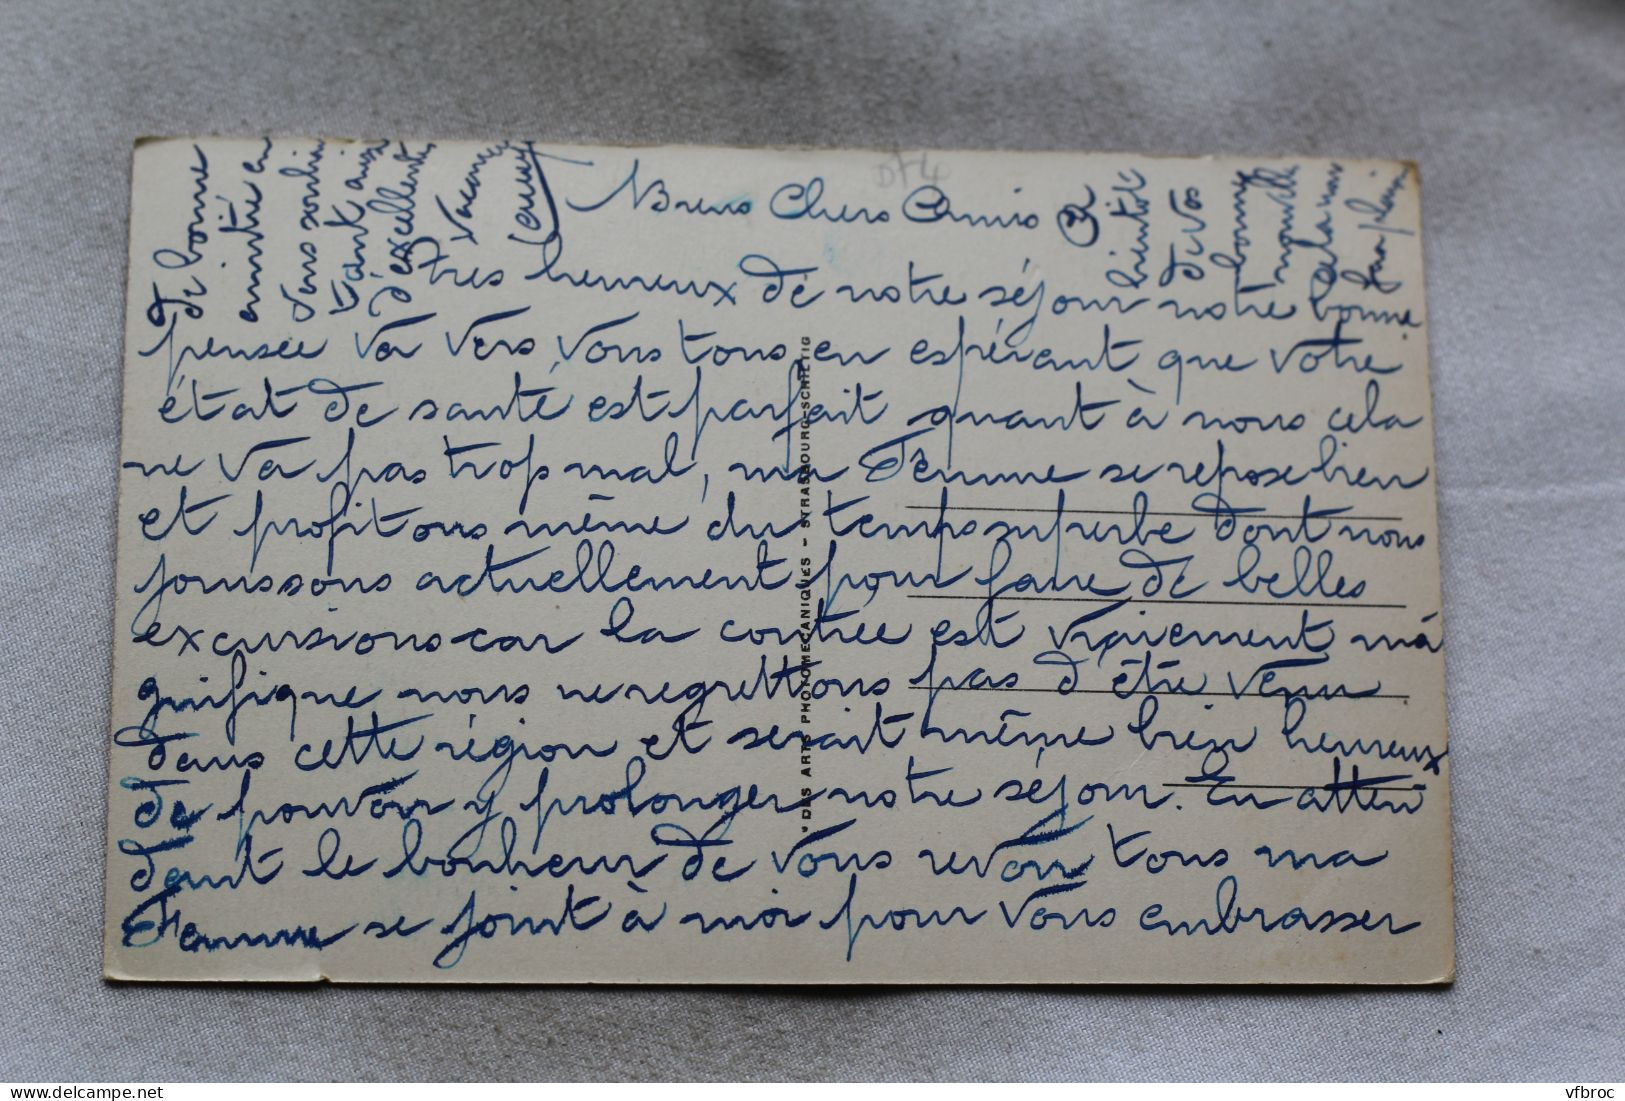 Biens Chers Amis
très heureux de notre séjour notre bonne
pensée va vers vous tous en espérant que votre
état de santé est parfait quant à nous cela
ne va pas trop mal, ma Femme se repose bien
et profitons même du temps superbe dont nous
jouissons actuellement pour faire de belles
excursions car la contrée est vraiement ma
gnifique nous ne regrettons pas d'être venu
dans cette région et serait même bien heureux
de pouvoir y prolonger notre séjour. En atten
dant le bonheur de vous revoir tous ma
Femme se joint à moi pour vous embrasser
de bonne
amitié en
vous souhai
tant aussi
d'excellentes
vacances
à
bientôt
de vos
bonnes
nouvelles
cela nous
fera plaisir
"DES ARTS PHOTOMECANIQUES - STRASBOURG-SCHILTIG
DF4
vfbroc
vfbroc